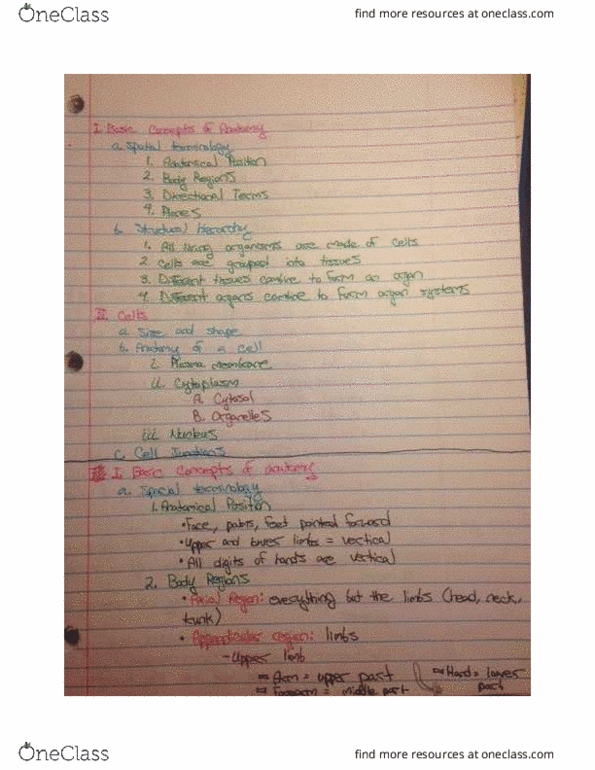 OneClass
find more resources at oneclass.com
I. Basic Concepts of Anatomy
a. Spatial terminology
1. Anatomical Position
2. Body Regions
3. Directional Terms
4. Planes
b. Structural hierarchy
1. All living organisms are made of cells
2. Cells are grouped into tissues
3. Different tissues combine to form an organ
4. Different organs combine to form organ systems
II. Cells
a. Size and shape
b. Anatomy of a cell
i. Plasma membrane
ii. Cytoplasm
A. Cytosol
B. Organelles
iii. Nucleus
c. Cell Junctions
I. Basic Concepts of anatomy
a. Spacial terminology
1. Anatomical Position
• Face, palms, feet pointed forward
• Upper and lower limbs = vertical
• All digits of hands are vertical
2. Body Regions
• Axial Region: everything but the limbs (head, neck,
trunk)
• Appendicular region: limbs
- Upper limb
Arm = upper part
Hand = lower
part
Forearm = middle part
OneClass
find more resources at oneclass.com